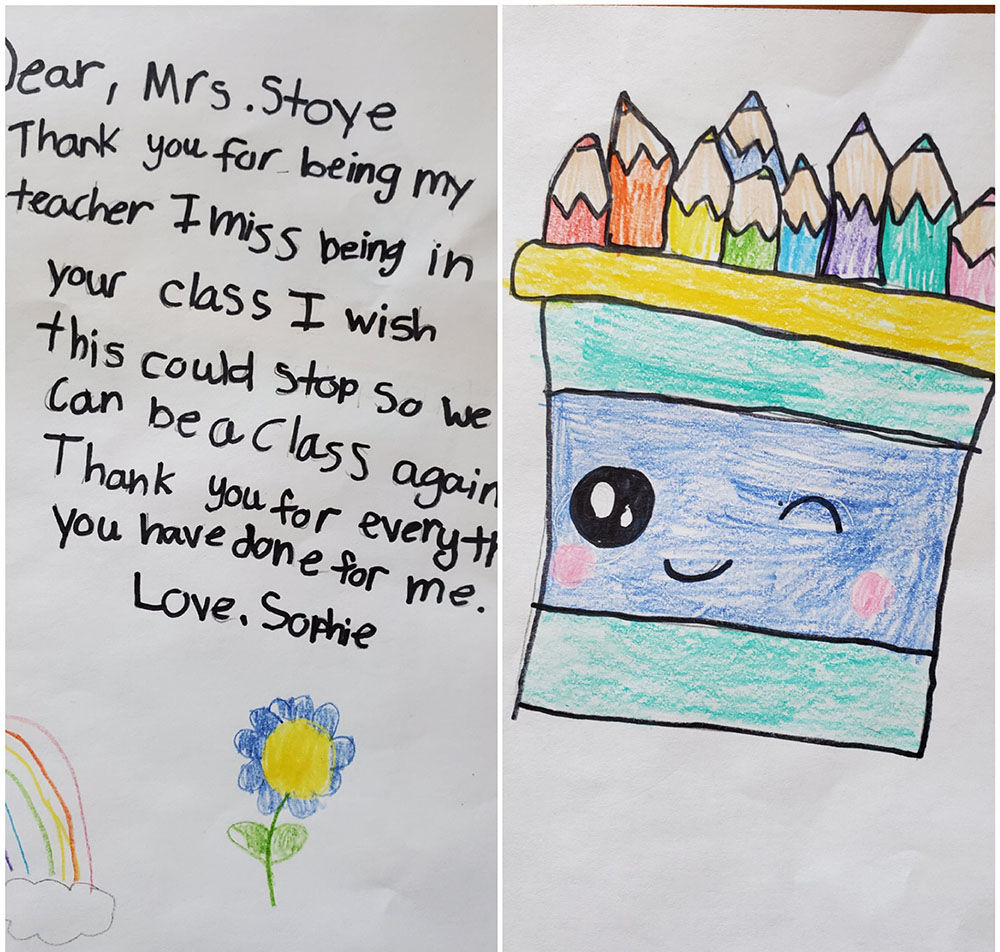 Dear, Mrs. Stoye
Thank you for being my
teacher I miss being in
your class I wish
this could stop so we
Can be a Class again
Thank you for everyth
you have done for me.
Love. Sophie